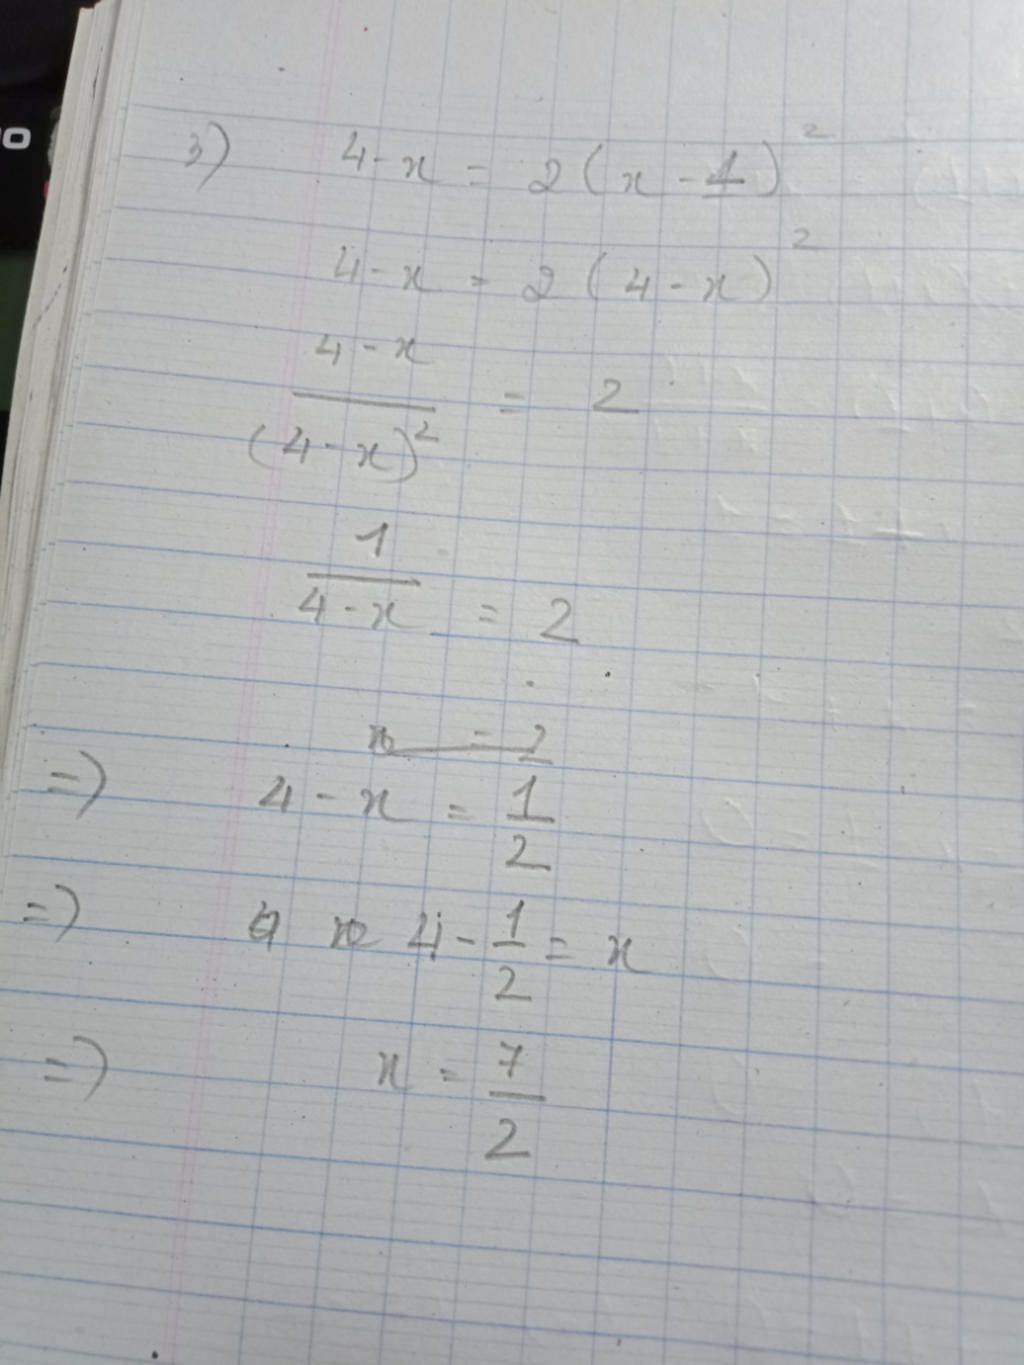 3) 4-x = 2(x-1)²
4-x = 2(4-x)²
4-x
(4-x)² = 2
1
4-x = 2
x = 2
=) 4-x = 1/2
=) 4-1/2 = x
=) x = 7/2